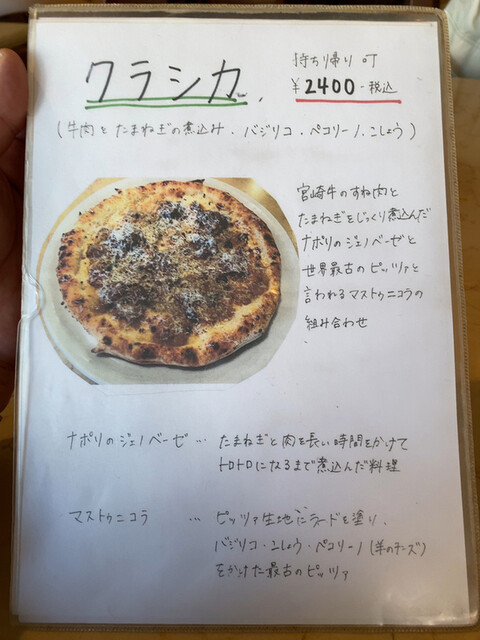 クラシカ
持ち帰り可
¥2400-税込
(牛肉とたまねぎの煮込み・バジリコ・ペコリーノ・こしょう)
宮崎牛のすね肉と
たまねぎをじっくり煮込んだ
ナポリのジェノベーゼと
世界最古のピッツァと
言われるマストゥニコラの
組み合わせ
ナポリのジェノベーゼ … たまねぎと肉を長い時間をかけて
トロトロになるまで煮込んだ料理
マストゥニコラ … ピッツァ生地にラードを塗り、
バジリコ・こしょう・ペコリーノ(羊のチーズ)
をかけた最古のピッツァ